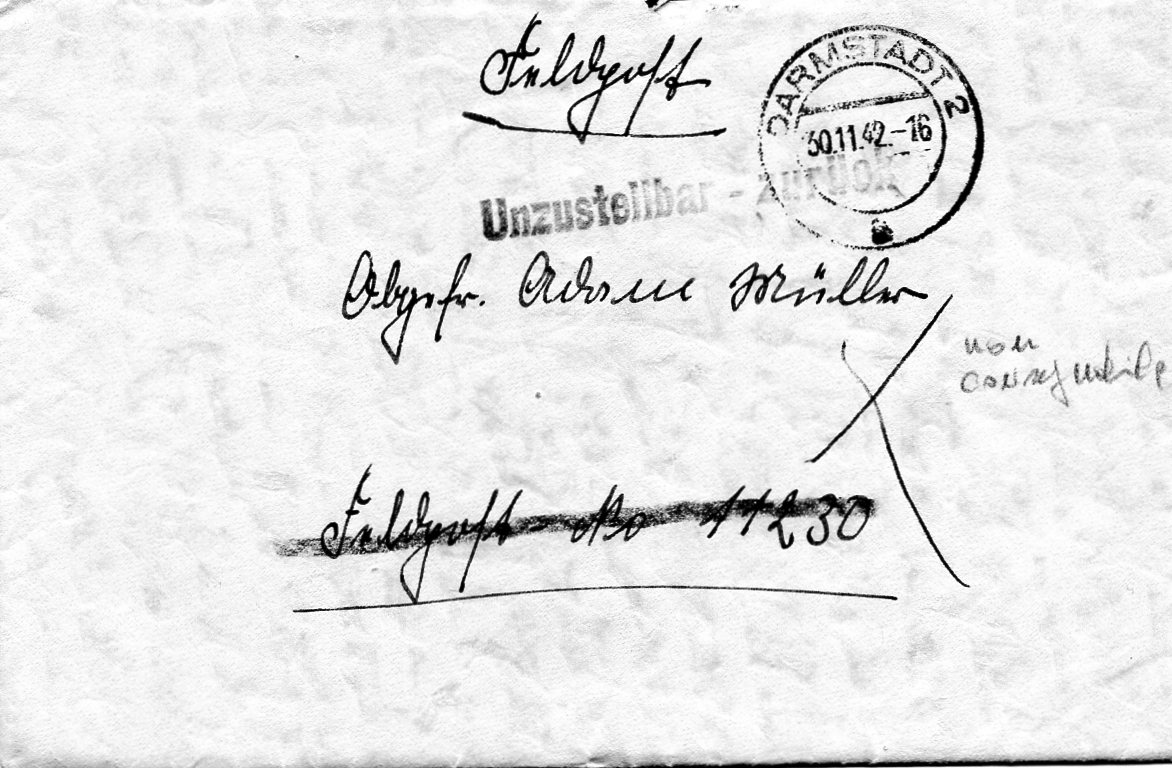 Feldpost
DARMSTADT 2
30.11.42.-16
a
Unzustellbar - zurück
Obgefr. Adam Müller
non
Feldpost - No 11230